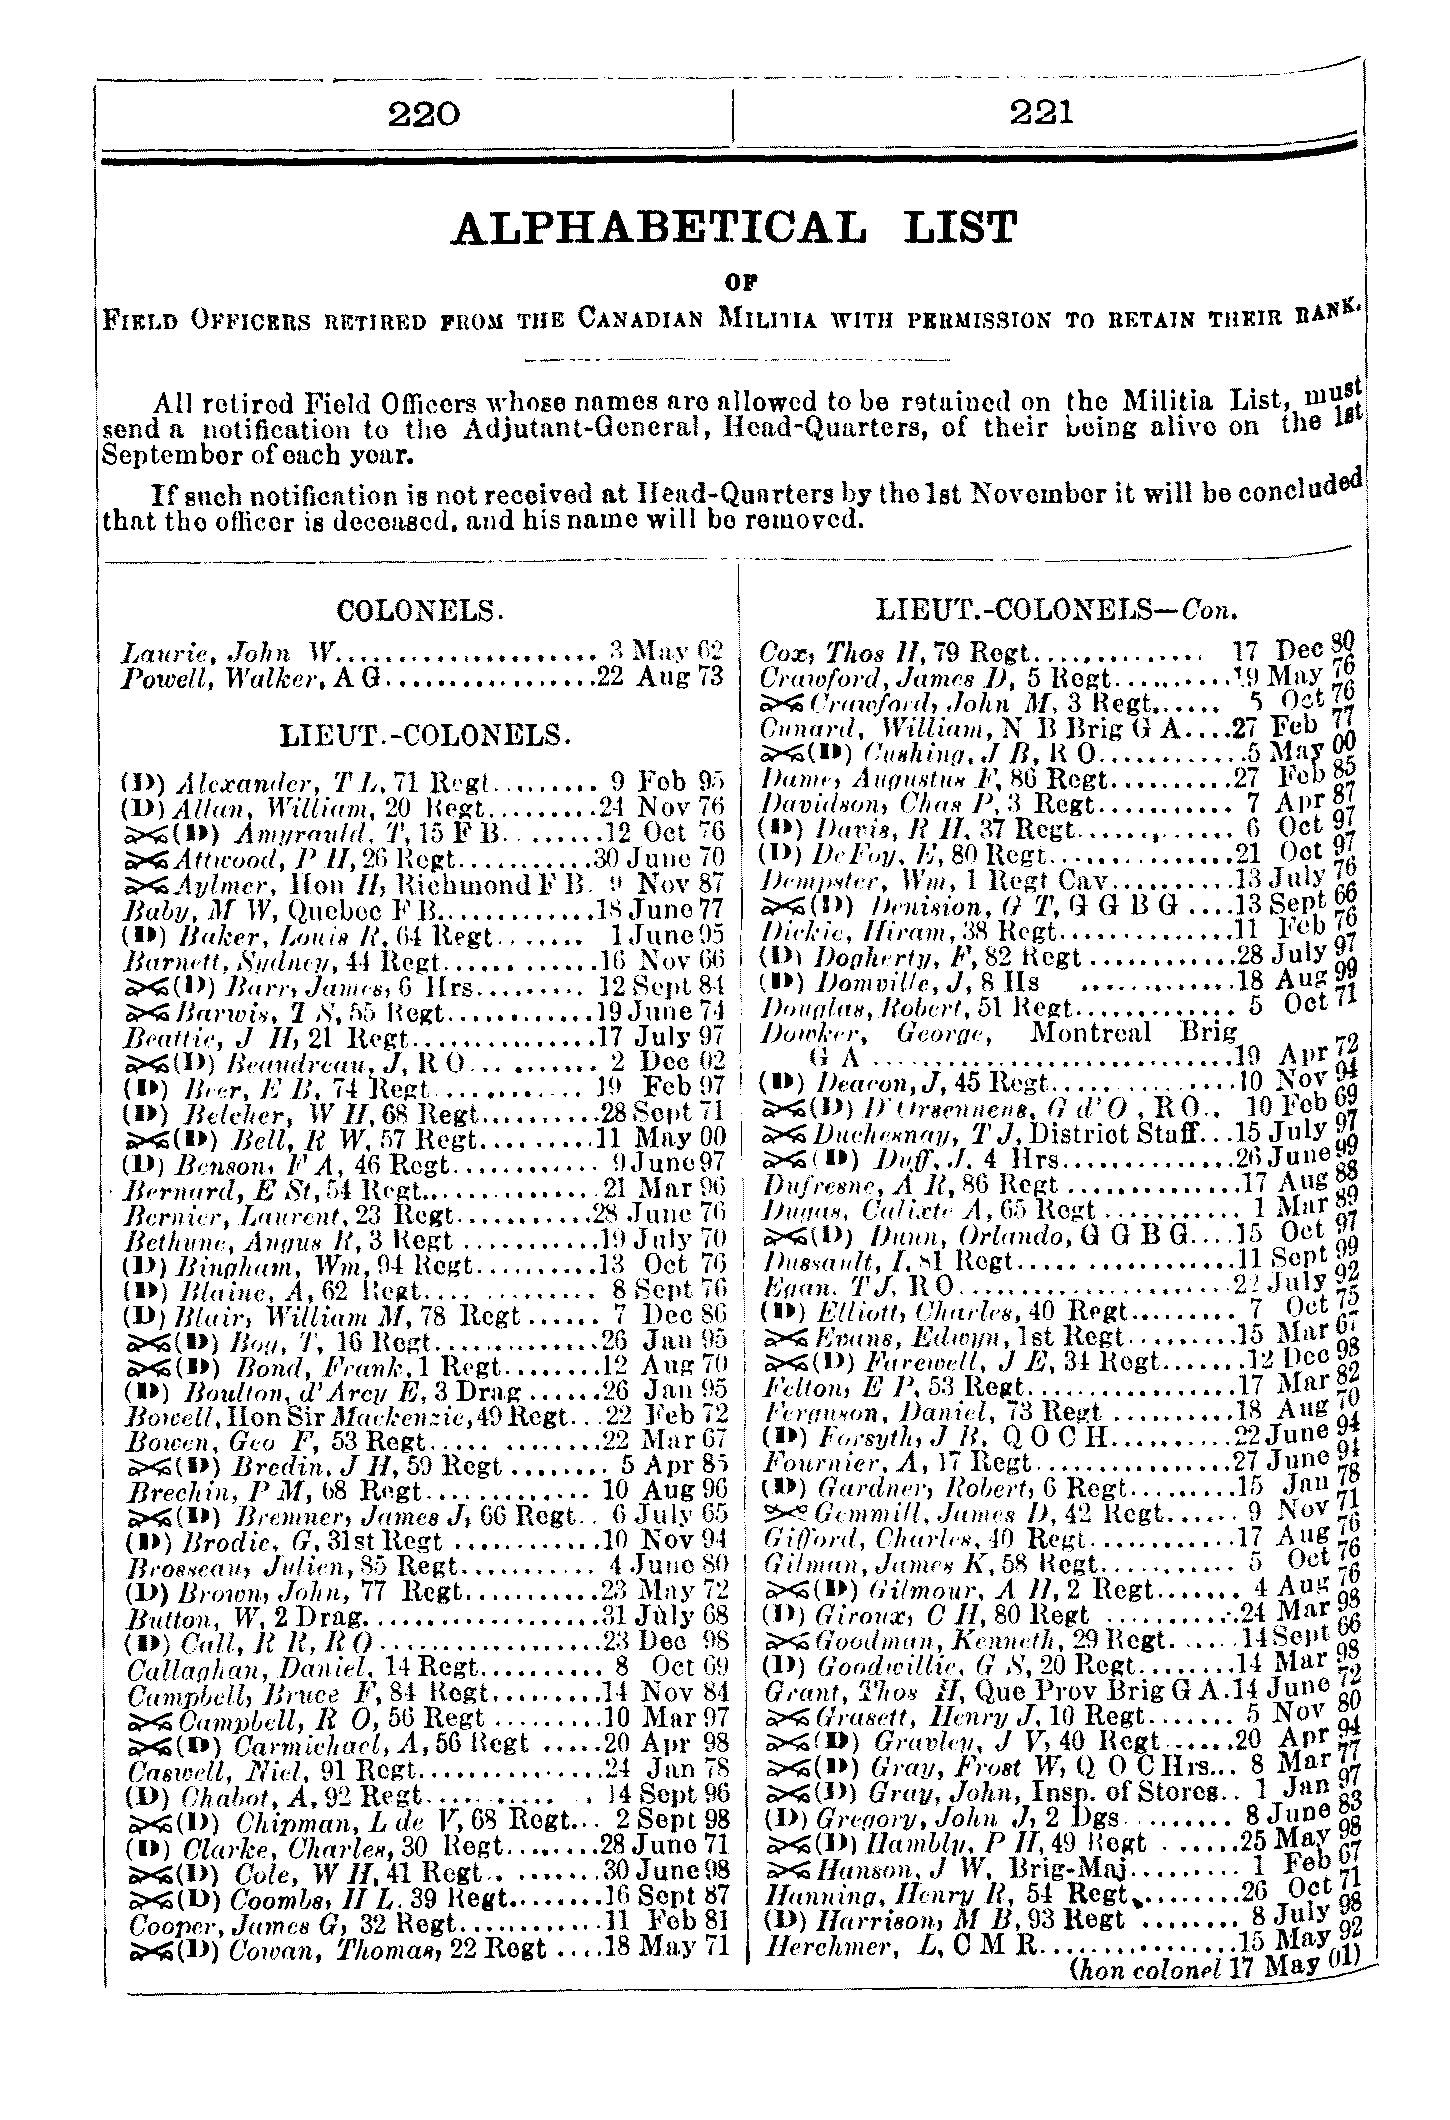 220
221
ALPHABETICAL LIST
OF
FIELD OFFICERS RETIRED FROM THE CANADIAN MILITIA WITH PERMISSION TO RETAIN THEIR RANK.
All retired Field Officers whose names are allowed to be retained on the Militia List, must
send a notification to the Adjutant-General, Head-Quarters, of their being alive on the 1st
September of each year.
If such notification is not received at Head-Quarters by the 1st November it will be concluded
that the officer is deceased, and his name will be removed.
COLONELS.
Laurie, John W.................... 3 May 62
Powell, Walker, A G................22 Aug 73
LIEUT.-COLONELS.
(D) Alexander, T L, 71 Regt......... 9 Feb 95
(D) Allan, William, 20 Regt.........24 Nov 76
(D) Amyrauld, T, 15 F B.........12 Oct 76
Attwood, P H, 26 Regt...........30 June 70
Aylmer, Hon H, Richmond F B. 9 Nov 87
Baby, M W, Quebec F B.............18 June 77
(D) Baker, Louis R, 64 Regt........ 1 June 95
Barnett, Sydney, 44 Regt............16 Nov 66
(D) Barr, James, 6 Hrs......... 12 Sept 84
Barwis, T S, 55 Regt............19 June 74
Beattie, J H, 21 Regt..............17 July 97
(D) Beaudreau, J, R O........... 2 Dec 02
(D) Beer, E B, 74 Regt............ 19 Feb 97
(D) Belcher, W H, 68 Regt.........28 Sept 71
(D) Bell, R W, 57 Regt.........11 May 00
(D) Benson, F A, 46 Regt........... 9 June 97
Bernard, E St, 54 Regt..............21 Mar 96
Bernier, Laurent, 23 Regt...........28 June 76
Bethune, Angus R, 3 Regt ...........19 July 70
(D) Bingham, Wm, 94 Regt..........13 Oct 76
(D) Blaine, A, 62 Regt............ 8 Sept 76
(D) Blair, William M, 78 Regt ...... 7 Dec 86
(D) Boy, T, 16 Regt..............26 Jan 95
(D) Bond, Frank, 1 Regt........12 Aug 70
(D) Boulton, d'Arcy E, 3 Drag ......26 Jan 95
Bowell, Hon Sir Mackenzie, 49 Regt...22 Feb 72
Bowen, Geo F, 53 Regt..............22 Mar 67
(D) Bredin, J H, 59 Regt ........ 5 Apr 85
Brechin, P M, 68 Regt.............. 10 Aug 96
(D) Bremner, James J, 66 Regt.. 6 July 65
(D) Brodie, G, 31st Regt ...........10 Nov 94
Brosseau, Julien, 85 Regt........... 4 June 80
(D) Brown, John, 77 Regt...........23 May 72
Button, W, 2 Drag..................31 July 68
(D) Call, R R, R O..................23 Dec 98
Callaghan, Daniel, 14 Regt.......... 8 Oct 69
Campbell, Bruce F, 84 Regt.........14 Nov 84
Campbell, R O, 56 Regt .........10 Mar 97
(D) Carmichael, A, 56 Regt .....20 Apr 98
Caswell, Niel, 91 Regt..............24 Jan 78
(D) Chabot, A, 92 Regt............14 Sept 96
(D) Chipman, L de V, 68 Regt... 2 Sept 98
(D) Clarke, Charles, 30 Regt........28 June 71
(D) Cole, W H, 41 Regt.. ........30 June 98
(D) Coombs, H L. 39 Regt........16 Sept 87
Cooper, James G, 32 Regt............11 Feb 81
(D) Cowan, Thomas, 22 Regt ....18 May 71
LIEUT.-COLONELS—Con.
Cox, Thos H, 79 Regt.............. 17 Dec 80
Crawford, James D, 5 Regt..........19 May 76
Crawford, John M, 3 Regt...... 5 Oct 76
Cunard, William, N B Brig G A....27 Feb 77
(D) Cushing, J B, R O............5 May 00
Dame, Augustus F, 86 Regt..........27 Feb 85
Davidson, Chas P, 3 Regt........... 7 Apr 87
(D) Davis, R H, 37 Regt............ 6 Oct 97
(D) DeFoy, E, 80 Regt...............21 Oct 97
Dempster, Wm, 1 Regt Cav..........13 July 76
(D) Denision, G T, G G B G ....13 Sept 66
Dickie, Hiram, 38 Regt..............11 Feb 76
(D) Dogherty, F, 82 Regt ............28 July 97
(D) Domville, J, 8 Hs .............18 Aug 99
Douglas, Robert, 51 Regt............. 5 Oct 71
Dowker, George, Montreal Brig
G A ..............................19 Apr 72
(D) Deacon, J, 45 Regt..............10 Nov 94
(D) D'Orsennens, G d'O, R O.. 10 Feb 69
Duchesnay, T J, District Staff...15 July 97
(D) Duff, J. 4 Hrs..............26 June 99
Dufresne, A R, 86 Regt ..............17 Aug 88
Dugas, Calixte A, 65 Regt ........... 1 Mar 89
(D) Dunn, Orlando, G G B G....15 Oct 97
Dussault, I, 81 Regt..................11 Sept 99
Egan. T J, R O......................22 July 92
(D) Elliott, Charles, 40 Regt......... 7 Oct 75
Evans, Edwyn, 1st Regt.........15 Mar 67
(D) Farewell, J E, 34 Regt.......12 Dec 98
Felton, E P, 53 Regt.................17 Mar 82
Ferguson, Daniel, 73 Regt ..........18 Aug 70
(D) Forsyth, J B, Q O C H..........22 June 94
Fournier, A, 17 Regt................27 June 94
(D) Gardner, Robert, 6 Regt.........15 Jan 78
Gemmill, James D, 42 Regt...... 9 Nov 71
Gifford, Charles, 40 Regt............17 Aug 76
Gilman, James K, 58 Regt........... 5 Oct 76
(D) Gilmour, A H, 2 Regt....... 4 Aug 76
(D) Giroux, C H, 80 Regt ...........24 Mar 98
Goodman, Kenneth, 29 Regt......14 Sept 66
(D) Goodwillie, G S, 20 Regt........14 Mar 98
Grant, Thos H, Que Prov Brig G A.14 June 72
Grasett, Henry J, 10 Regt....... 5 Nov 80
(D) Gravley, J V, 40 Regt......20 Apr 94
(D) Gray, Frost W, Q O C Hrs... 8 Mar 77
(D) Gray, John, Insp. of Stores.. 1 Jan 97
(D) Gregory, John J, 2 Dgs......... 8 June 83
(D) Hambly, P H, 49 Regt ......25 May 98
Hanson, J W, Brig-Maj......... 1 Feb 67
Hanning, Henry R, 54 Regt.........26 Oct 71
(D) Harrison, M B, 93 Regt ........ 8 July 98
Herchmer, L, C M R................15 May 92
(hon colonel 17 May 01)